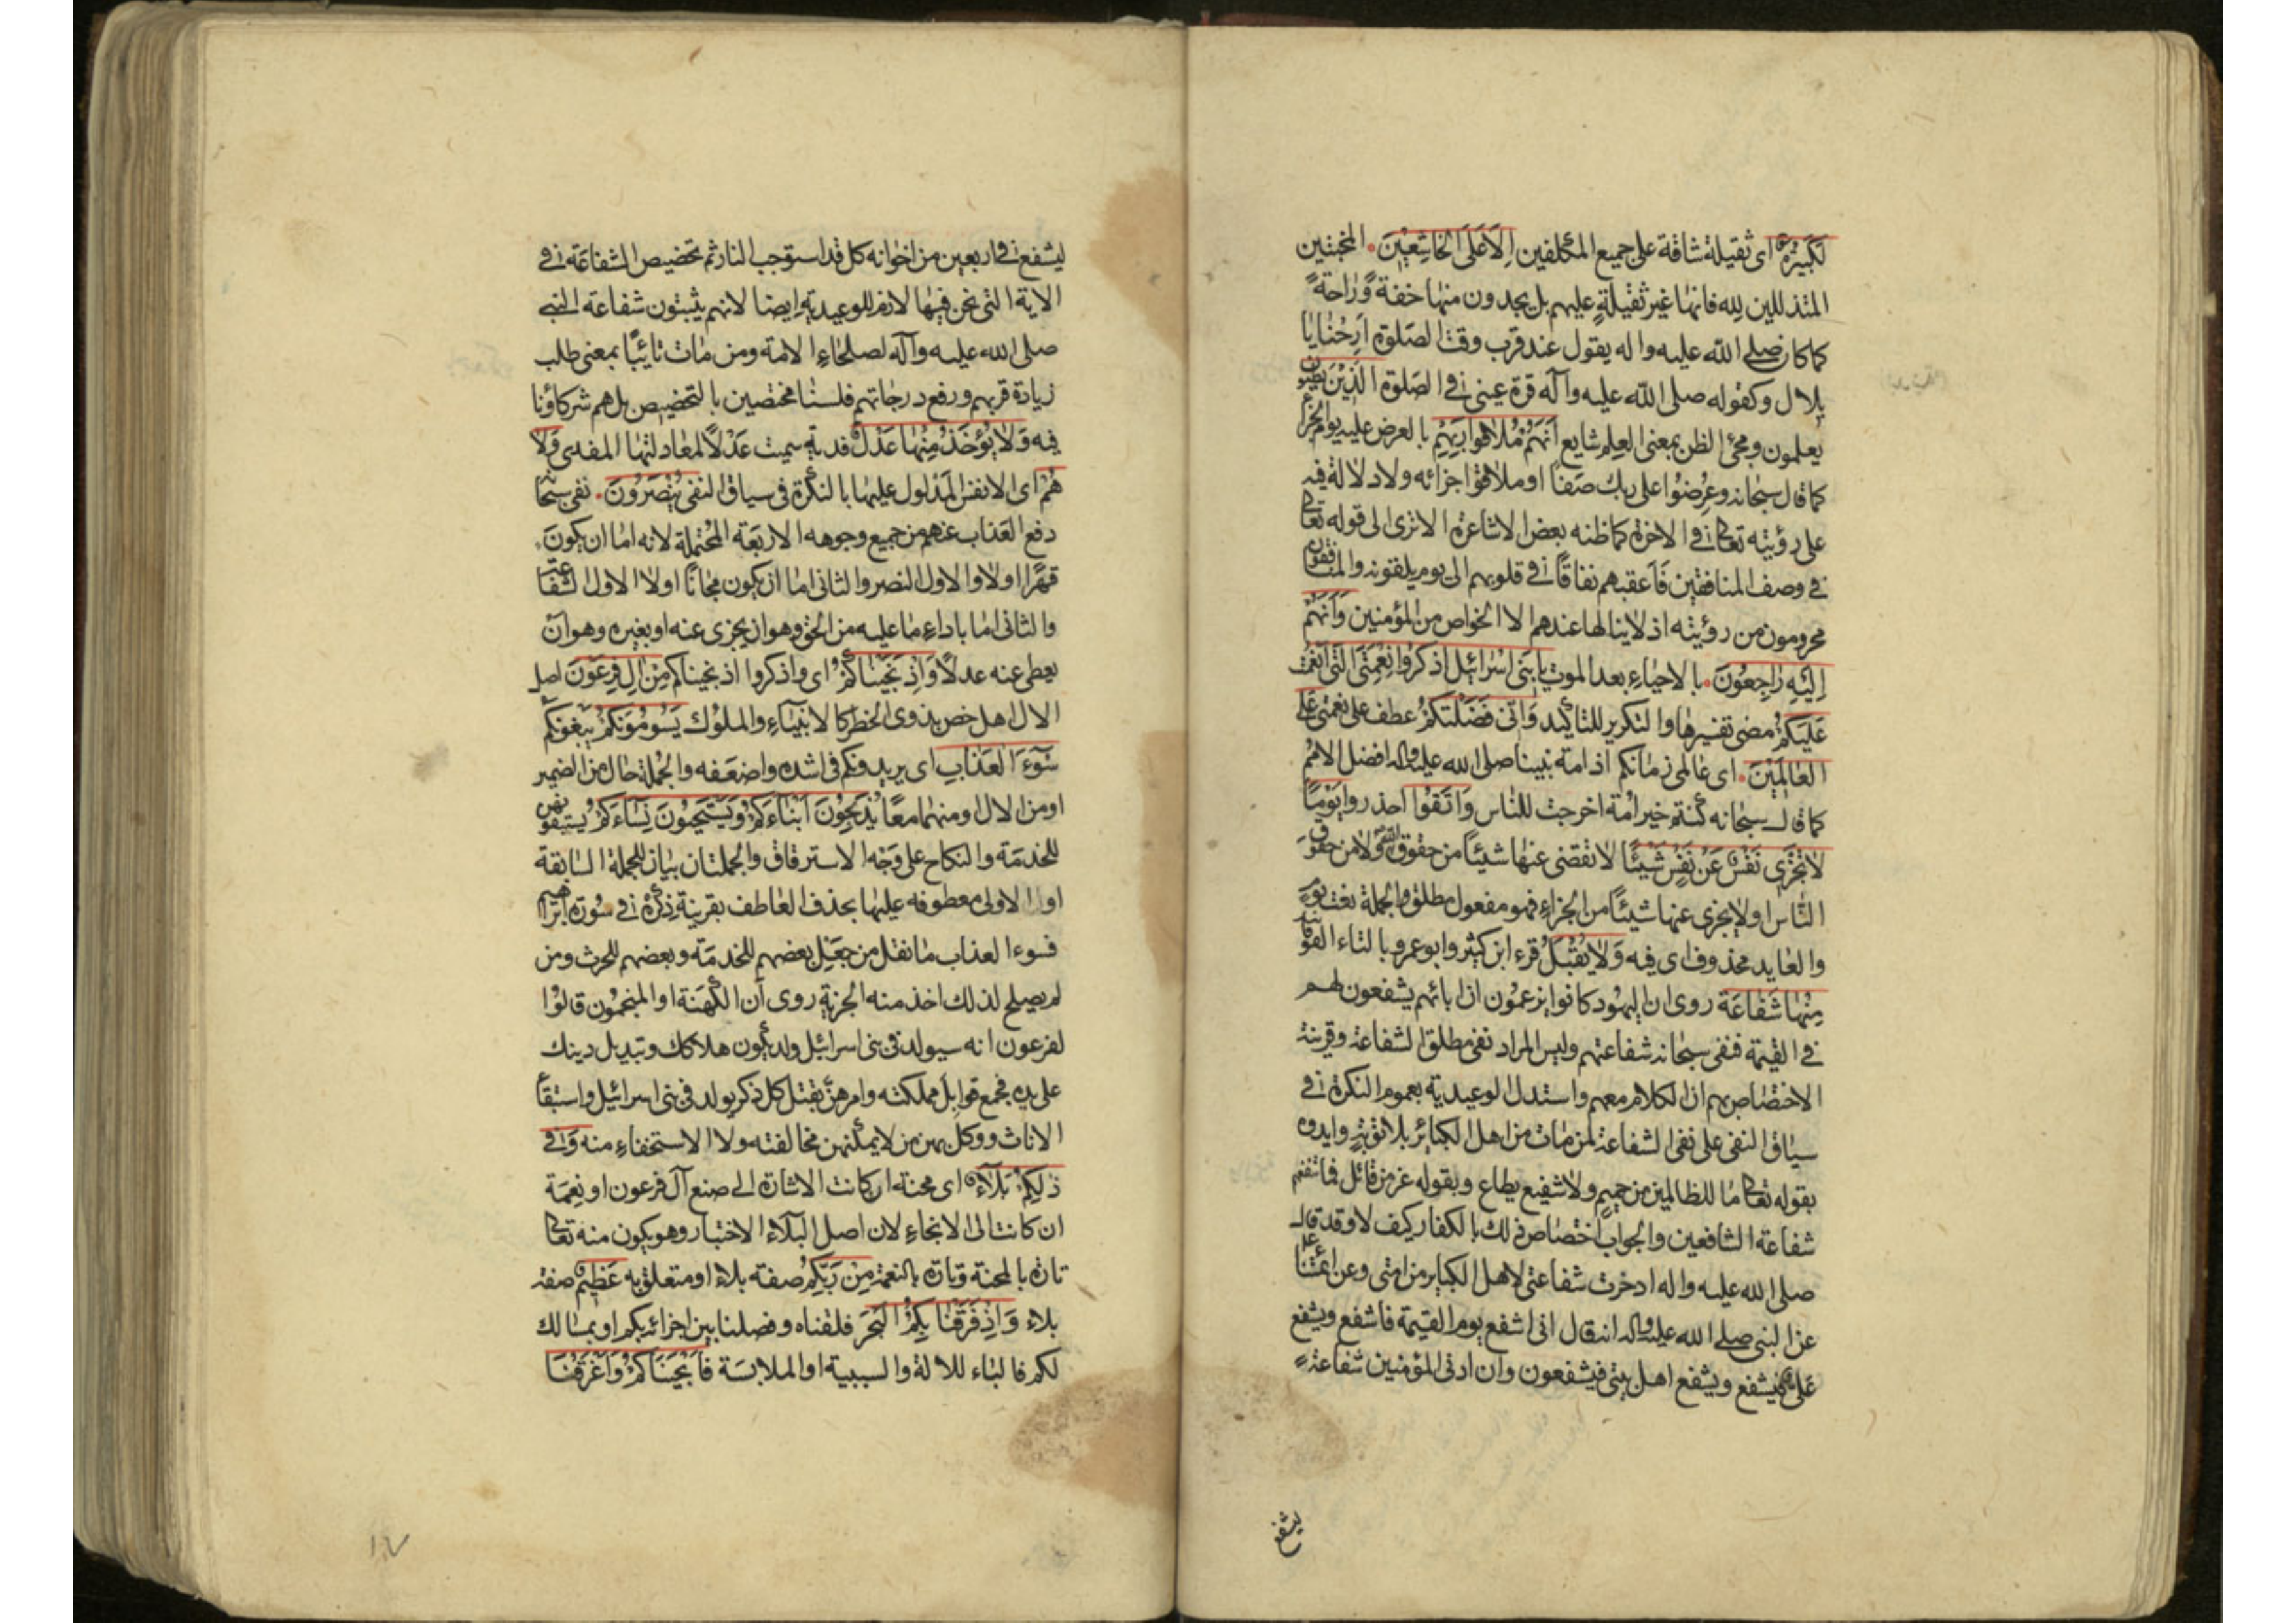 لَكَبِيْرَةٌ اى ثقيلة شاقة على جميع المكلفين اِلَّا عَلَى الْخَاشِعِيْنَ. المخبتين
المتذللين لله فانها غير ثقيلةٍ عليهم بل يجدون منها خفةً وَّراحةً
كما كان صلى الله عليه واله يقول عند قرب وقت الصلوة اَرِحْنا يا
بلال وكقوله صلى الله عليه وآله قرة عينى فى الصلوة الَّذِيْنَ يَظُنُّونَ
يعلمون ومجئ الظن بمعنى العلم شايع اَنَّهُمْ مُلَاقُوا رَبِّهِمْ بالعرض عليه يوم الجزاء
كما قال سبحانه وعُرِضُوْا على ربك صَفًّا او ملاقوا جزائه ولا دلالة فيه
على رؤيته تعالى فى الاخرة كما ظنه بعض الاشاعرة الا ترى الى قوله تعالى
فى وصف المنافقين فَاَعقبهم نفاقًا فى قلوبهم الى يوم يلقونه والمنافقون
محرومون من رؤيته اذ لا ينالها عندهم الا الخواص من المؤمنين وَاَنَّهُمْ
اِلَيْهِ رَاجِعُوْنَ. بالاحياءِ بعد الموت يا بَنِى اِسْرائِيلَ اذْكُرُوا نِعْمَتِىَ الَّتِى اَنْعَمْتُ
عَلَيْكُمْ مضى تفسيرها والتكرير للتأكيد وَاَنِّى فَضَّلْتُكُمْ عطف على نعمتى عَلَى
الْعَالَمِيْنَ. اى عالمى زمانكم اذ امة نبينا صلى الله عليه واله افضل الامم
كما قال سبحانه كُنتم خير اُمة اخرجت للناس وَاتَّقُوْا احذروا يَوْمًا
لَا تَجْزِى نَفْسٌ عَنْ نَفْسٍ شَيْئًا لا تقضى عنها شيئًا من حقوق الله ولا من حقوق
النَّاس او لا يجزى عنها شيئًا من الجزاءِ فهو مفعول مطلق والجملة نعت يوم
والعايد محذوف اى فيه وَلَا يُقْبَلُ قرء ابن كثير وابو عمرو بالتاء الفوقانية
مِنْهَا شَفَاعَةٌ روى ان اليهود كانوا يزعمون ان ابائهم يشفعون لهم
فى القيمة فنفى سبحانه شفاعتهم وليس المراد نفى مطلق الشفاعة وقرينة
الاختصاص بهم ان الكلام معهم واستدل الوعيدية بعموم النكرة فى
سياق النفى على نفى الشفاعة لمن مات من اهل الكبائر بلا توبةٍ وايدوه
بقوله تعالى ما للظالمين من حميمٍ ولا شفيع يطاع وبقوله عز من قائل فما تنفعهم
شفاعة الشافعين والجواب اختصاص ذلك بالكفار كيف لا وقد قال
صلى الله عليه واله ادخرت شفاعتى لاهل الكبائر من امتى وعن ائمتنا ع
عن النبى صلى الله عليه واله انه قال انى اشفع يوم القيمة فاشفع ويشفع
على فيشفع ويشفع اهل بيتى فيشفعون وان ادنى المؤمنين شفاعةً
يشفع
ليشفع فى اربعين من اخوانه كل قد استوجب النار ثم تخصيص الشفاعة فى
الاية التى نحن فيها لازم للوعيدية ايضا لانهم يثبتون شفاعة النبى
صلى الله عليه وآله لصلحاءِ الامة ومن مات تائبًا بمعنى طلب
زيادة قربهم ورفع درجاتهم فلسنا مختصين بالتخصيص بل هم شركاؤنا
فيه وَلَا يُؤْخَذُ مِنْهَا عَدْلٌ فدية سميت عَدْلًا لمعادلتها المفدى وَلَا
هُمْ اى الانفس المدلول عليها بالنكرة فى سياق النفى يُنْصَرُونَ. نفى سبحانه
دفع العذاب عنهم من جميع وجوهه الاربعة المحتملة لانه اما ان يكونَ
قهرًا اولا والاول النصر والثانى اما ان يكون مجانًا اولا الاول الشفاعة
والثانى اما باداءِ ما عليه من الحق وهو ان يجزى عنه او بغيره وهو ان
يعطى عنه عدلًا وَاِذْ نَجَّيْنَاكُمْ اى واذكروا اذ نجيناكم مِنْ اٰلِ فِرْعَوْنَ اصل
الال اهل خص بذوى الخطر كالانبياءِ والملوك يَسُوْمُوْنَكُمْ يبغونكم
سُوْءَ الْعَذَابِ اى يريدونكم فى اشده واضعفه والجملة حال من الضمير
او من الال او منهما معًا يُذَبِّحُوْنَ اَبْنَاءَكُمْ وَيَسْتَحْيُوْنَ نِسَاءَكُمْ يستبقونهن
للخدمة والنكاح على وَجْه الاسترقاق والجملتان بيان للجملة السابقة
او الاولى معطوفه عليها بحذف العاطف بقرينة ذِكْره فى سُورَة ابراهيم
فسوء العذاب ما نقل من جَعْل بعضهم للخدمة وبعضهم للحرث ومن
لم يصلح لذلك اخذ منه الجزية روى اَن الكَهَنة او المنجمون قالوا
لفرعون انه سيولد فى بنى اسرائيل ولد يكون هلاكك وتبديل دينك
على يده فجمع قوابل مملكته وامرهن بقتل كل ذكر يولد فى بنى اسرائيل واستبقاء
الاناث ووكل بهن من لا يمكنهن مخالفته ولا الاستخفاء منه وَفِى
ذٰلِكُمْ بَلَآءٌ اى محنة ان كانت الاشارة الى صنع آل فرعون او نِعمة
ان كانت الى الانجاءِ لان اصل البلآء الاختبار وهو يكون منه تعالى
تارة بالمحنة وتارة بالنعمة مِنْ رَبِّكُمْ صفته بلاء او متعلق به عَظِيْمٌ صفة
بلاء وَاِذْ فَرَقْنَا بِكُمُ الْبَحْرَ فلقناه وفصلنا بين اجزائه بكم او بمسالك
لكم فالباء للالة والسببية او الملابسة فَاَنْجَيْنَاكُمْ وَاَغْرَقْنَا
١٧